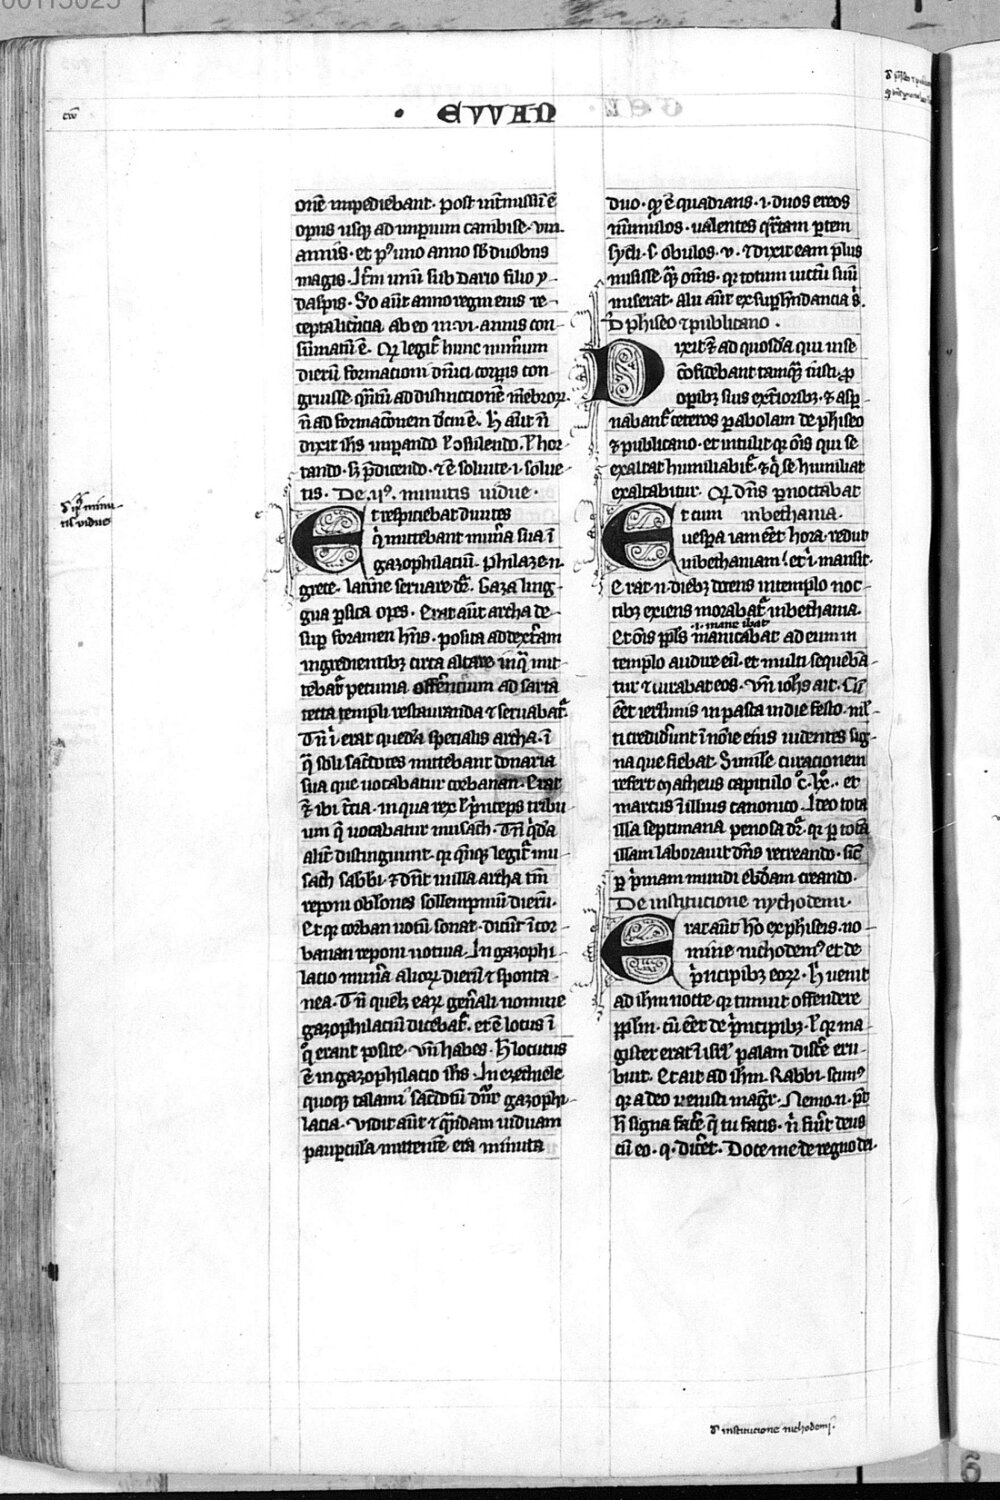 · EVVAN
onē impediebant · post int̄missū ē
opus usq; ad imperium cambise · viii ·
annis · et p9 uno anno sb duobus
magis · Itē unū sub dario filio y-
daspis · So aūt anno regni eius re-
cepta licencia ab eo in · vi · annis con-
sūmatū ē · Q legit̉ hunc nūerum
dierū formacioni dn̄ici corpis con-
gruisse qn̄tū ad distinctionē mēbroꝝ ·
n̄ ad formacōnem
dixit ihs impando
tando · sꝫ p̄dicendo · ē solvite · i · solve-
tis · De · ijº · minutis vidue ·
Et respiciebat divites
q̄ mittebant mun̄a sua ī
gazophilaciū · philaze n̄
grece · latine servare dr̄ · Gaza ling-
gua p̄sica opes · Erat aūt archa de-
sup foramen hn̄s · posita ad dext̄am
ingredientibꝫ circa altare in quā mit-
tebat̉ pecunia offerencium ad sarta
tecta templi restauranda ⁊ servabat̉ ·
Tn̄ ī erat queda specialis archa · ī
q̄ soli sac̄dotes mittebant donaria
sua que vocabatur corbanan · Erat
⁊ ibi t̄cia · in qua rex l̉ princeps tribu-
um q̄ vocabatur musach · Tn̄ q̄da
alit̉ distinguunt · qr quīqꝫ legit̉ mu-
sach sabbi · ⁊ dn̄t in illa archa tm̄
reponi oblōnes sollempniū dierū ·
Et qꝫ corban votū sonat · dicūt ī cor-
banan reponi votiva · In gazophi-
lacio mun̄a alioꝝ dierū ⁊ sponta-
nea · Tn̄ quelꝫ eaꝝ gen̄ali nomine
gazophilaciū dicebat̉ · et ē locus ī
q̊ erant posite · Vn̄ habes · H locutus
ē in gazophilacio ihs · In ezechiele
quoqꝫ talami sac̄dotū dn̄r gazophi-
lacia · Vidit aūt ⁊ quādam viduam
paupculā mittentē era minuta
duo · qꝫ ē quadrans · i · duos ereos
nūmulos · valentes q̄rtam ptem
sycli · s̄ · obulos · v · ⁊ dixit eam plus
misisse q̄ om̄s · qr totum victū suū
miserat · Alii aūt ex suphabundancia s̄ ·
De phiseo ⁊ publicano ·
Dixit ⁊ ad quosda qui in se
cōfidebant tamq̄ iusti · ꝓ
opibꝫ suis ext̄ioribꝫ · ⁊ asp-
nabant̉ ceteros parabolam de phiseo
⁊ publicano · et intulit qꝫ om̄s qui se
exaltat humiliabit̉ · ⁊ q̄ se humiliat
exaltabitur · Q dn̄s pnoctabat
Et cum in bethania ·
vespa iam eēt hora · rediit
in bethaniam et ī mansit ·
Erat · n · diebꝫ docens in templo noc-
tibꝫ exiens morabat̉ in bethania ·
· i · mane ibat
Et om̄s ppls manicabat ad eum in
templo audire eū · et multi sequebā-
tur ⁊ curabat eos · Vn̄ iohs ait · Cū
eēt ierl̄imis in pasca in die festo · ml̄-
ti credidunt ī noīe eius videntes sig-
na que fiebat · Simile curacionem
refert Matheus capitulo º c · lxº · et
marcus ī illius canonico · Ideo tota
illa septimana penosa dr̄ · qr p totā
illam laboravit dn̄s recreando · sic̄
p primam mundi ebdōam creando ·
De institucione nychodemi ·
Erat aūt ho ex phiseis · no-
mine nichodem9 et de
principibꝫ eoꝝ · H venit
ad ihm nocte qr timuit offendere
pplm · cū eēt de principibꝫ · l̉ qr ma-
gister erat ī isrl̄ palam disc̄e eru-
buit · Et ait ad ihm · Rabbi · scim9
qr a deo venisti magr̄ · Nemo · n · pt̄
h signa fac̄e q̄ tu facis · n̄ fu̅it deus
cū eo · q · dic̄et · Doce me de regno dei ·
d ijº minu-
tis vidue
d institucione nichodemi ·